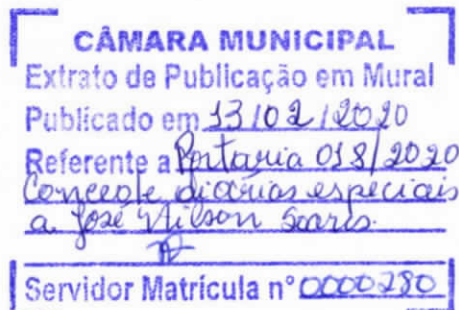 CÂMARA MUNICIPAL
Extrato de Publicação em Mural
Publicado em 13/02/2020
Referente a Portaria 018/2020
Concede diárias especiais
a José Nilson Soares.
Servidor Matrícula nº 0000280